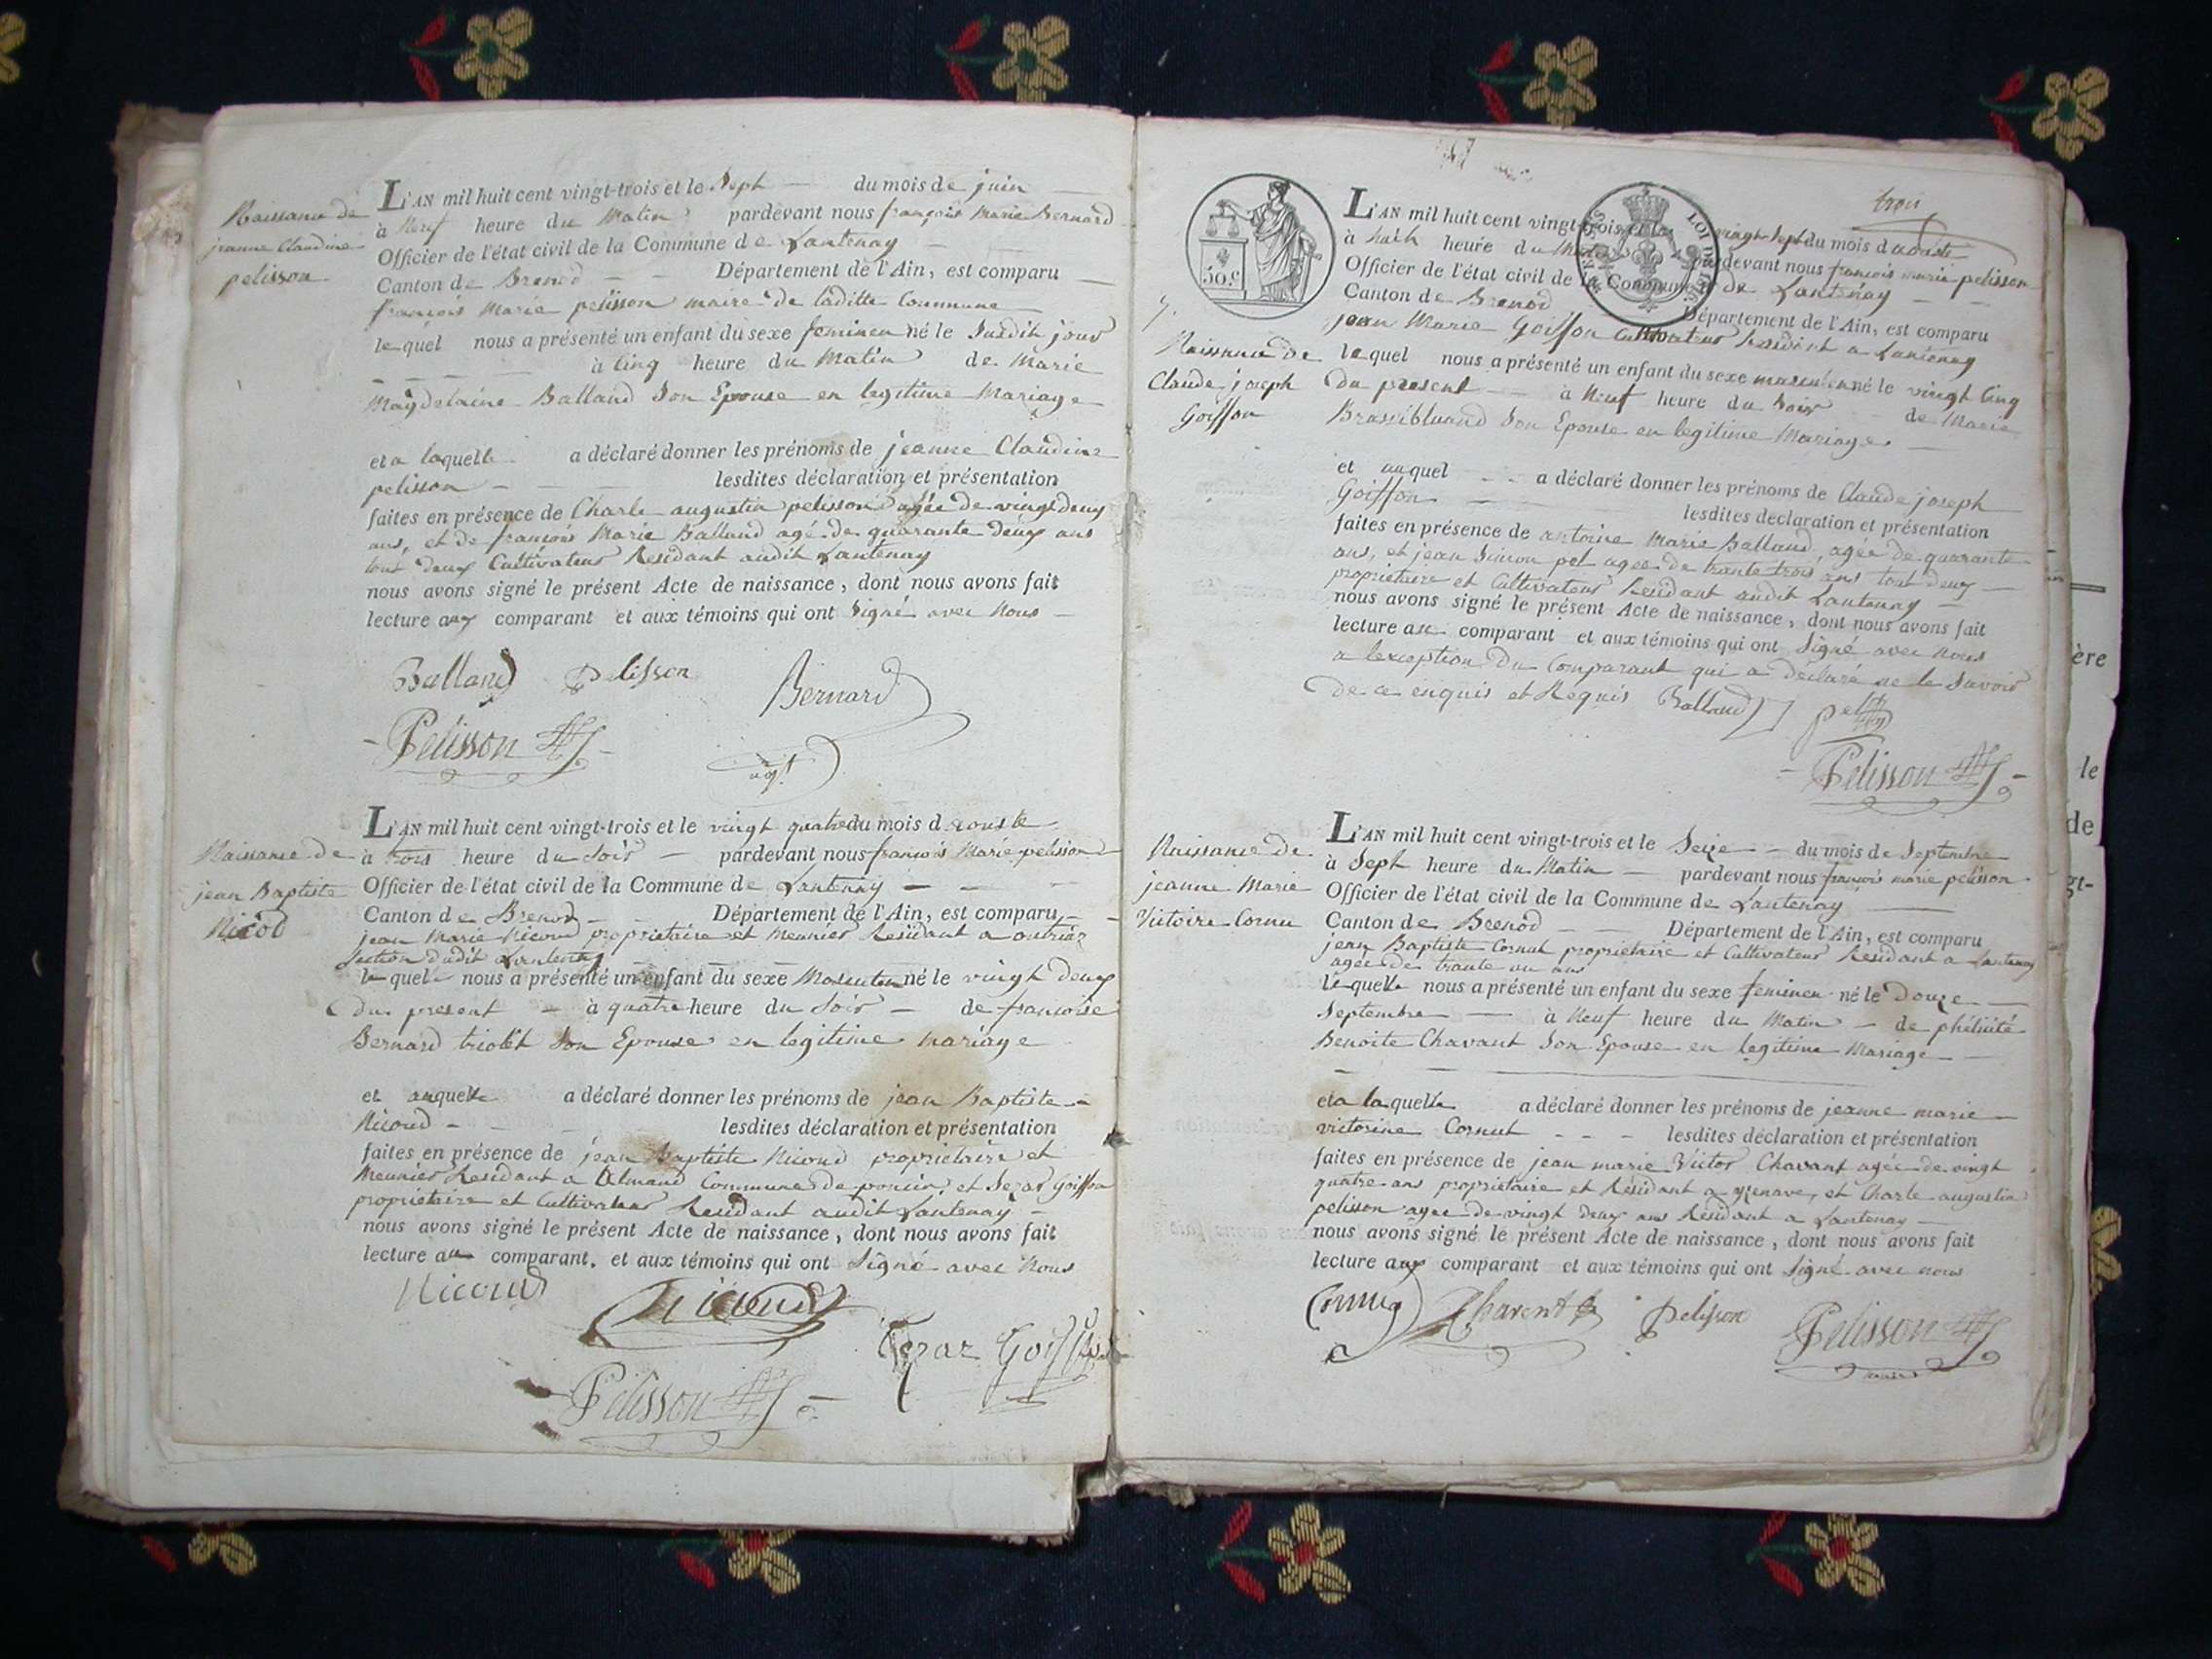 Naissance de
jeanne Claudine
pelisson
L'AN mil huit cent vingt-trois et le Sept du mois de juin
à Neuf heure du Matin pardevant nous françois Marie Bernard
Officier de l'état civil de la Commune de Lantenay
Canton de Brenod Département de l'Ain, est comparu
françois Marie pelisson maire de laditte Commune
lequel nous a présenté un enfant du sexe feminen né le Susdit jour
à Cinq heure du Matin de Marie
Magdelaine Balland Son Epouse en legitime Mariage
et a laquelle a déclaré donner les prénoms de jeanne Claudine
pelisson lesdites déclaration et présentation
faites en présence de Charle augustin pelisson agée de vingt deux
ans, et de françois Marie Balland agé de quarante deux ans
tout deux Cultivateur Residant audit Lantenay
nous avons signé le présent Acte de naissance, dont nous avons fait
lecture aux comparant et aux témoins qui ont Signé avec Nous
Balland pelisson Bernard
Pelisson
agt
Naissance de
jean Baptiste
Nicod
L'AN mil huit cent vingt-trois et le vingt quatre du mois d aouste
à trois heure du Soir pardevant nous françois Marie pelisson
Officier de l'état civil de la Commune de Lantenay
Canton de Brenod Département de l'Ain, est comparu
jean Marie Nicoud proprietaire et Meunier Residant a outriaz
Section dudit Lantenay
le quel nous a présenté un enfant du sexe Masculen né le vingt deux
du present à quatre heure du Soir de françoise
Bernard triolet Son Epouse en legitime mariage
et auquel a déclaré donner les prénoms de jean Baptiste
Nicoud lesdites déclaration et présentation
faites en présence de jean Baptiste Nicoud proprietaire et
Meunier Residant a Commune de poncin, et Sezar Goiffon
proprietaire et Cultivateur Residant audit Lantenay
nous avons signé le présent Acte de naissance, dont nous avons fait
lecture au comparant. et aux témoins qui ont Signé avec Nous
Nicoud Nicoud
Cezar Goiffon
Pelisson
trois
50 c.
LOI DE
7.
Naissance de
Claude joseph
Goiffon
L'AN mil huit cent vingt-trois et le vingt Sept du mois d aouste
à huit heure du Matin pardevant nous françois marie pelisson
Officier de l'état civil de la Commune de Lantenay
Canton de Brenod Département de l'Ain, est comparu
jean Marie Goiffon Cultivateur Residant a Lantenay
lequel nous a présenté un enfant du sexe masculen né le vingt Cinq
du present à Neuf heure du Soir de Marie
Son Epouse en legitime Mariage
et auquel a déclaré donner les prénoms de Claude joseph
Goiffon lesdites declaration et présentation
faites en présence de antoine Marie Balland agée de quarante
ans, et jean Simon pel agee de trante trois ans tout deux
proprietaire et Cultivateur Residant audit Lantenay
nous avons signé le présent Acte de naissance, dont nous avons fait
lecture au comparant et aux témoins qui ont Signé avec nous
a lexception du Comparant qui a déclaré ne le Savoir
de ce enquis et Requis Balland pel
Pelisson
Naissance de
jeanne Marie
Victoire Cornu
L'AN mil huit cent vingt-trois et le Seize du mois de Septembre
à Sept heure du Matin pardevant nous françois marie pelisson
Officier de l'état civil de la Commune de Lantenay
Canton de Brenod Département de l'Ain, est comparu
jean Baptiste Cornut proprietaire et Cultivateur Residant a Lantenay
agée de trante un ans
lequel nous a présenté un enfant du sexe feminen né le Douze
Septembre à Neuf heure du Matin de phélicité
Benoite Chavant Son Epouse en legitime Mariage
et a laquelle a déclaré donner les prénoms de jeanne marie
victorine Cornut lesdites déclaration et présentation
faites en présence de jean marie Victor Chavant agée de vingt
quatre ans proprietaire et Residant a et Charle augustin
pelisson agee de vingt deux ans Residant a Lantenay
nous avons signé le présent Acte de naissance, dont nous avons fait
lecture aux comparant et aux témoins qui ont Signé avec nous
Pelisson
Pelisson
maire
ère
le
de
gt-